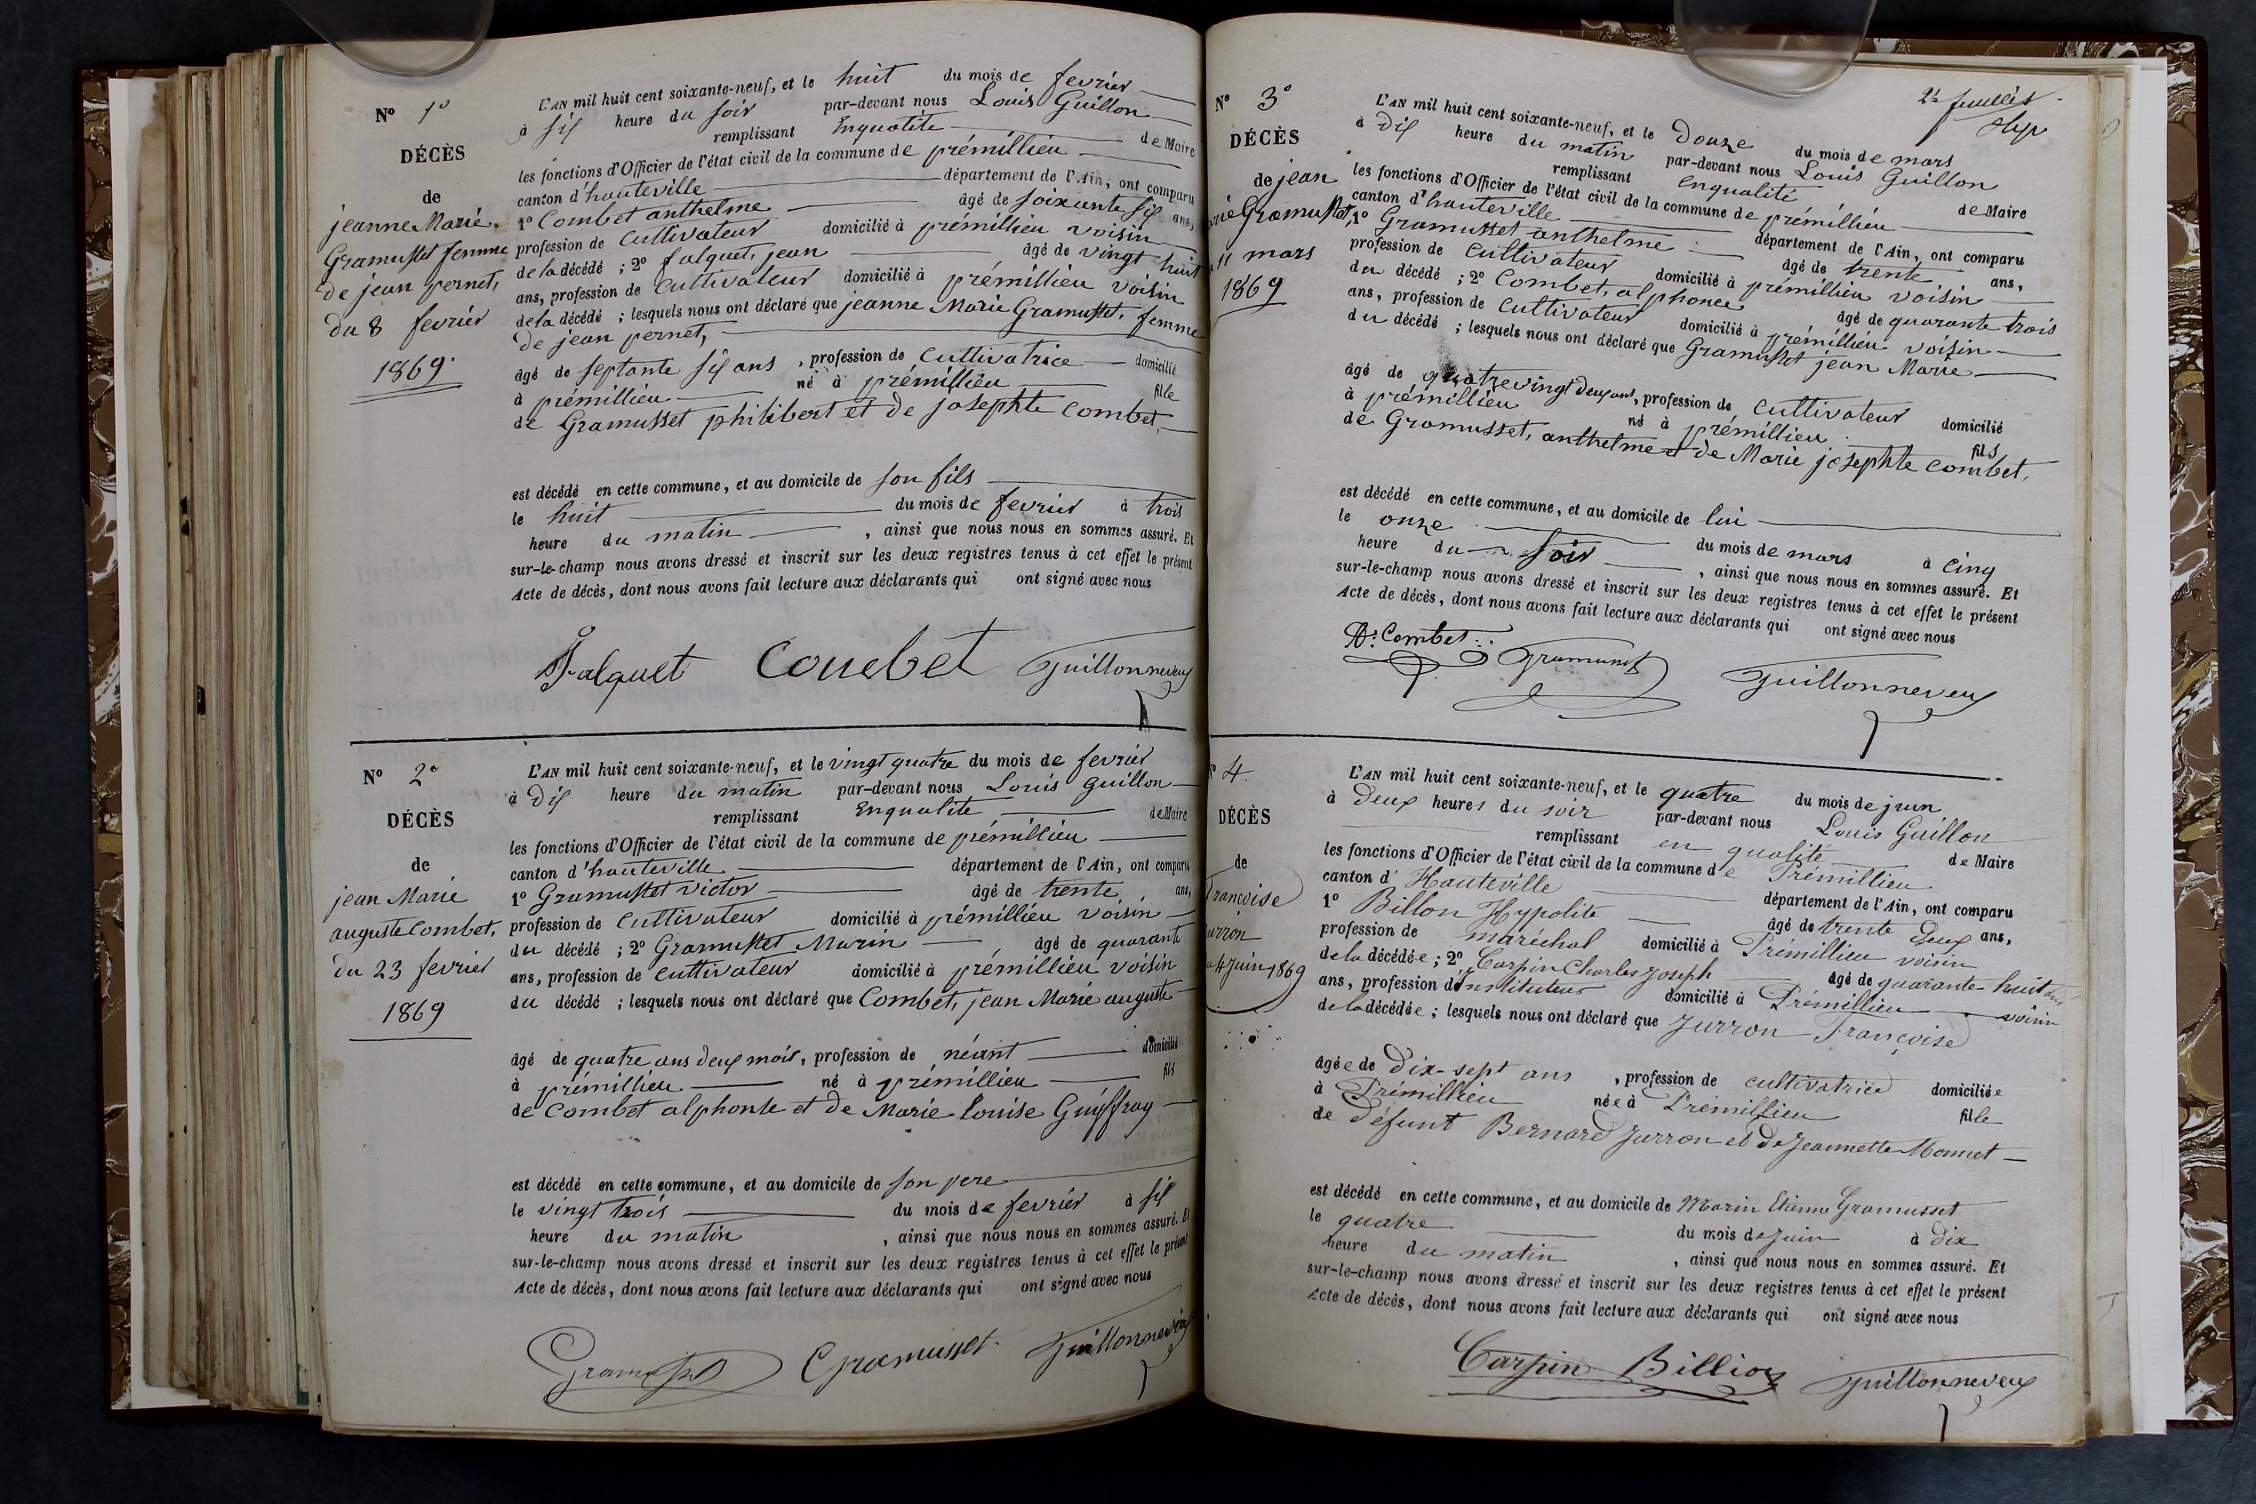 N° 1°
DÉCÈS
de
jeanne Marie
Gramusset femme
de jean pernet,
du 8 fevrier
1869.
L'AN mil huit cent soixante-neuf, et le huit du mois de fevrier
à six heure du soir par-devant nous Louis Guillon
remplissant Enqualité de Maire
les fonctions d'Officier de l'état civil de la commune de prémillieu
canton d'hauteville département de l'Ain, ont comparu
1° Combet anthelme âgé de soixante six ans,
profession de cultivateur domicilié à prémillieu voisin
de la décédé ; 2° falquet, jean âgé de vingt huit
ans, profession de cultivateur domicilié à prémillieu voisin
de la décédé ; lesquels nous ont déclaré que jeanne Marie Gramusset, femme
de jean pernet,
âgé de septante six ans, profession de cultivatrice domicilié
à prémillieu né à prémillieu fille
de Gramusset philibert et de josephte combet,
est décédé en cette commune, et au domicile de son fils
le huit du mois de fevrier à trois
heure du matin, ainsi que nous nous en sommes assuré. Et
sur-le-champ nous avons dressé et inscrit sur les deux registres tenus à cet effet le présent
Acte de décès, dont nous avons fait lecture aux déclarants qui ont signé avec nous
Falquet Couebet Guillonneveu
N° 2°
DÉCÈS
de
jean Marie
auguste Combet,
du 23 fevrier
1869
L'AN mil huit cent soixante-neuf, et le vingt quatre du mois de fevrier
à dix heure du matin par-devant nous Louis guillon
remplissant Enqualité de Maire
les fonctions d'Officier de l'état civil de la commune de prémillieu
canton d'hauteville département de l'Ain, ont comparu
1° Gramusset victor âgé de trente ans,
profession de cultivateur domicilié à prémillieu voisin
du décédé ; 2° Gramusset Marin âgé de quarante
ans, profession de cultivateur domicilié à prémillieu voisin
du décédé ; lesquels nous ont déclaré que Combet, jean Marie auguste
âgé de quatre ans deux mois, profession de néant domicilié
à prémillieu né à prémillieu fils
de Combet alphonse et de Marie louise Guiffray
est décédé en cette commune, et au domicile de son pere
le vingt trois du mois de fevrier à six
heure du matin, ainsi que nous nous en sommes assuré. Et
sur-le-champ nous avons dressé et inscrit sur les deux registres tenus à cet effet le présent
Acte de décès, dont nous avons fait lecture aux déclarants qui ont signé avec nous
Gramusset Gramusset Guillonneveu
2e feuillet
N° 3°
DÉCÈS
de jean
Gramusset,
11 mars
1869
L'AN mil huit cent soixante-neuf, et le Douze du mois de mars
à dix heure du matin par-devant nous Louis Guillon
remplissant enqualité de Maire
les fonctions d'Officier de l'état civil de la commune de prémillieu
canton d'hauteville département de l'Ain, ont comparu
1° Gramusset anthelme âgé de trente ans,
profession de cultivateur domicilié à prémillieu voisin
du décédé ; 2° Combet, alphonce âgé de quarante trois
ans, profession de cultivateur domicilié à prémillieu voisin
du décédé ; lesquels nous ont déclaré que Gramusset jean Marie
âgé de quatrevingt deux ans, profession de cultivateur domicilié
à prémillieu né à prémillieu fils
de Gramusset, anthelme et de Marie josephte combet,
est décédé en cette commune, et au domicile de lui
le onze du mois de mars à cinq
heure du soir, ainsi que nous nous en sommes assuré. Et
sur-le-champ nous avons dressé et inscrit sur les deux registres tenus à cet effet le présent
Acte de décès, dont nous avons fait lecture aux déclarants qui ont signé avec nous
A. Combet Gramusset Guillonneveu
N° 4.
DÉCÈS
de
Françoise
4 Juin 1869
L'AN mil huit cent soixante-neuf, et le quatre du mois de juin
à deux heures du soir par-devant nous Louis Guillon
remplissant en qualité de Maire
les fonctions d'Officier de l'état civil de la commune de Prémillieu
canton d'Hauteville département de l'Ain, ont comparu
1° Billon Hypolite âgé de trente deux ans,
profession de maréchal domicilié à Prémillieu voisin
de la décédée ; 2° Carpin Charles Joseph âgé de quarante-huit
ans, profession d'instituteur domicilié à Prémillieu voisin
de la décédée ; lesquels nous ont déclaré que Jurron Françoise
âgée de dix-sept ans, profession de cultivatrice domiciliée
à Prémillieu née à Prémillieu fille
de défunt Bernard Jurron et de Jeannette Monnet
est décédé en cette commune, et au domicile de Marin Etienne Gramusset
le quatre du mois de Juin à dix
heure du matin, ainsi que nous nous en sommes assuré. Et
sur-le-champ nous avons dressé et inscrit sur les deux registres tenus à cet effet le présent
Acte de décès, dont nous avons fait lecture aux déclarants qui ont signé avec nous
Carpin Billion Guillonneveu